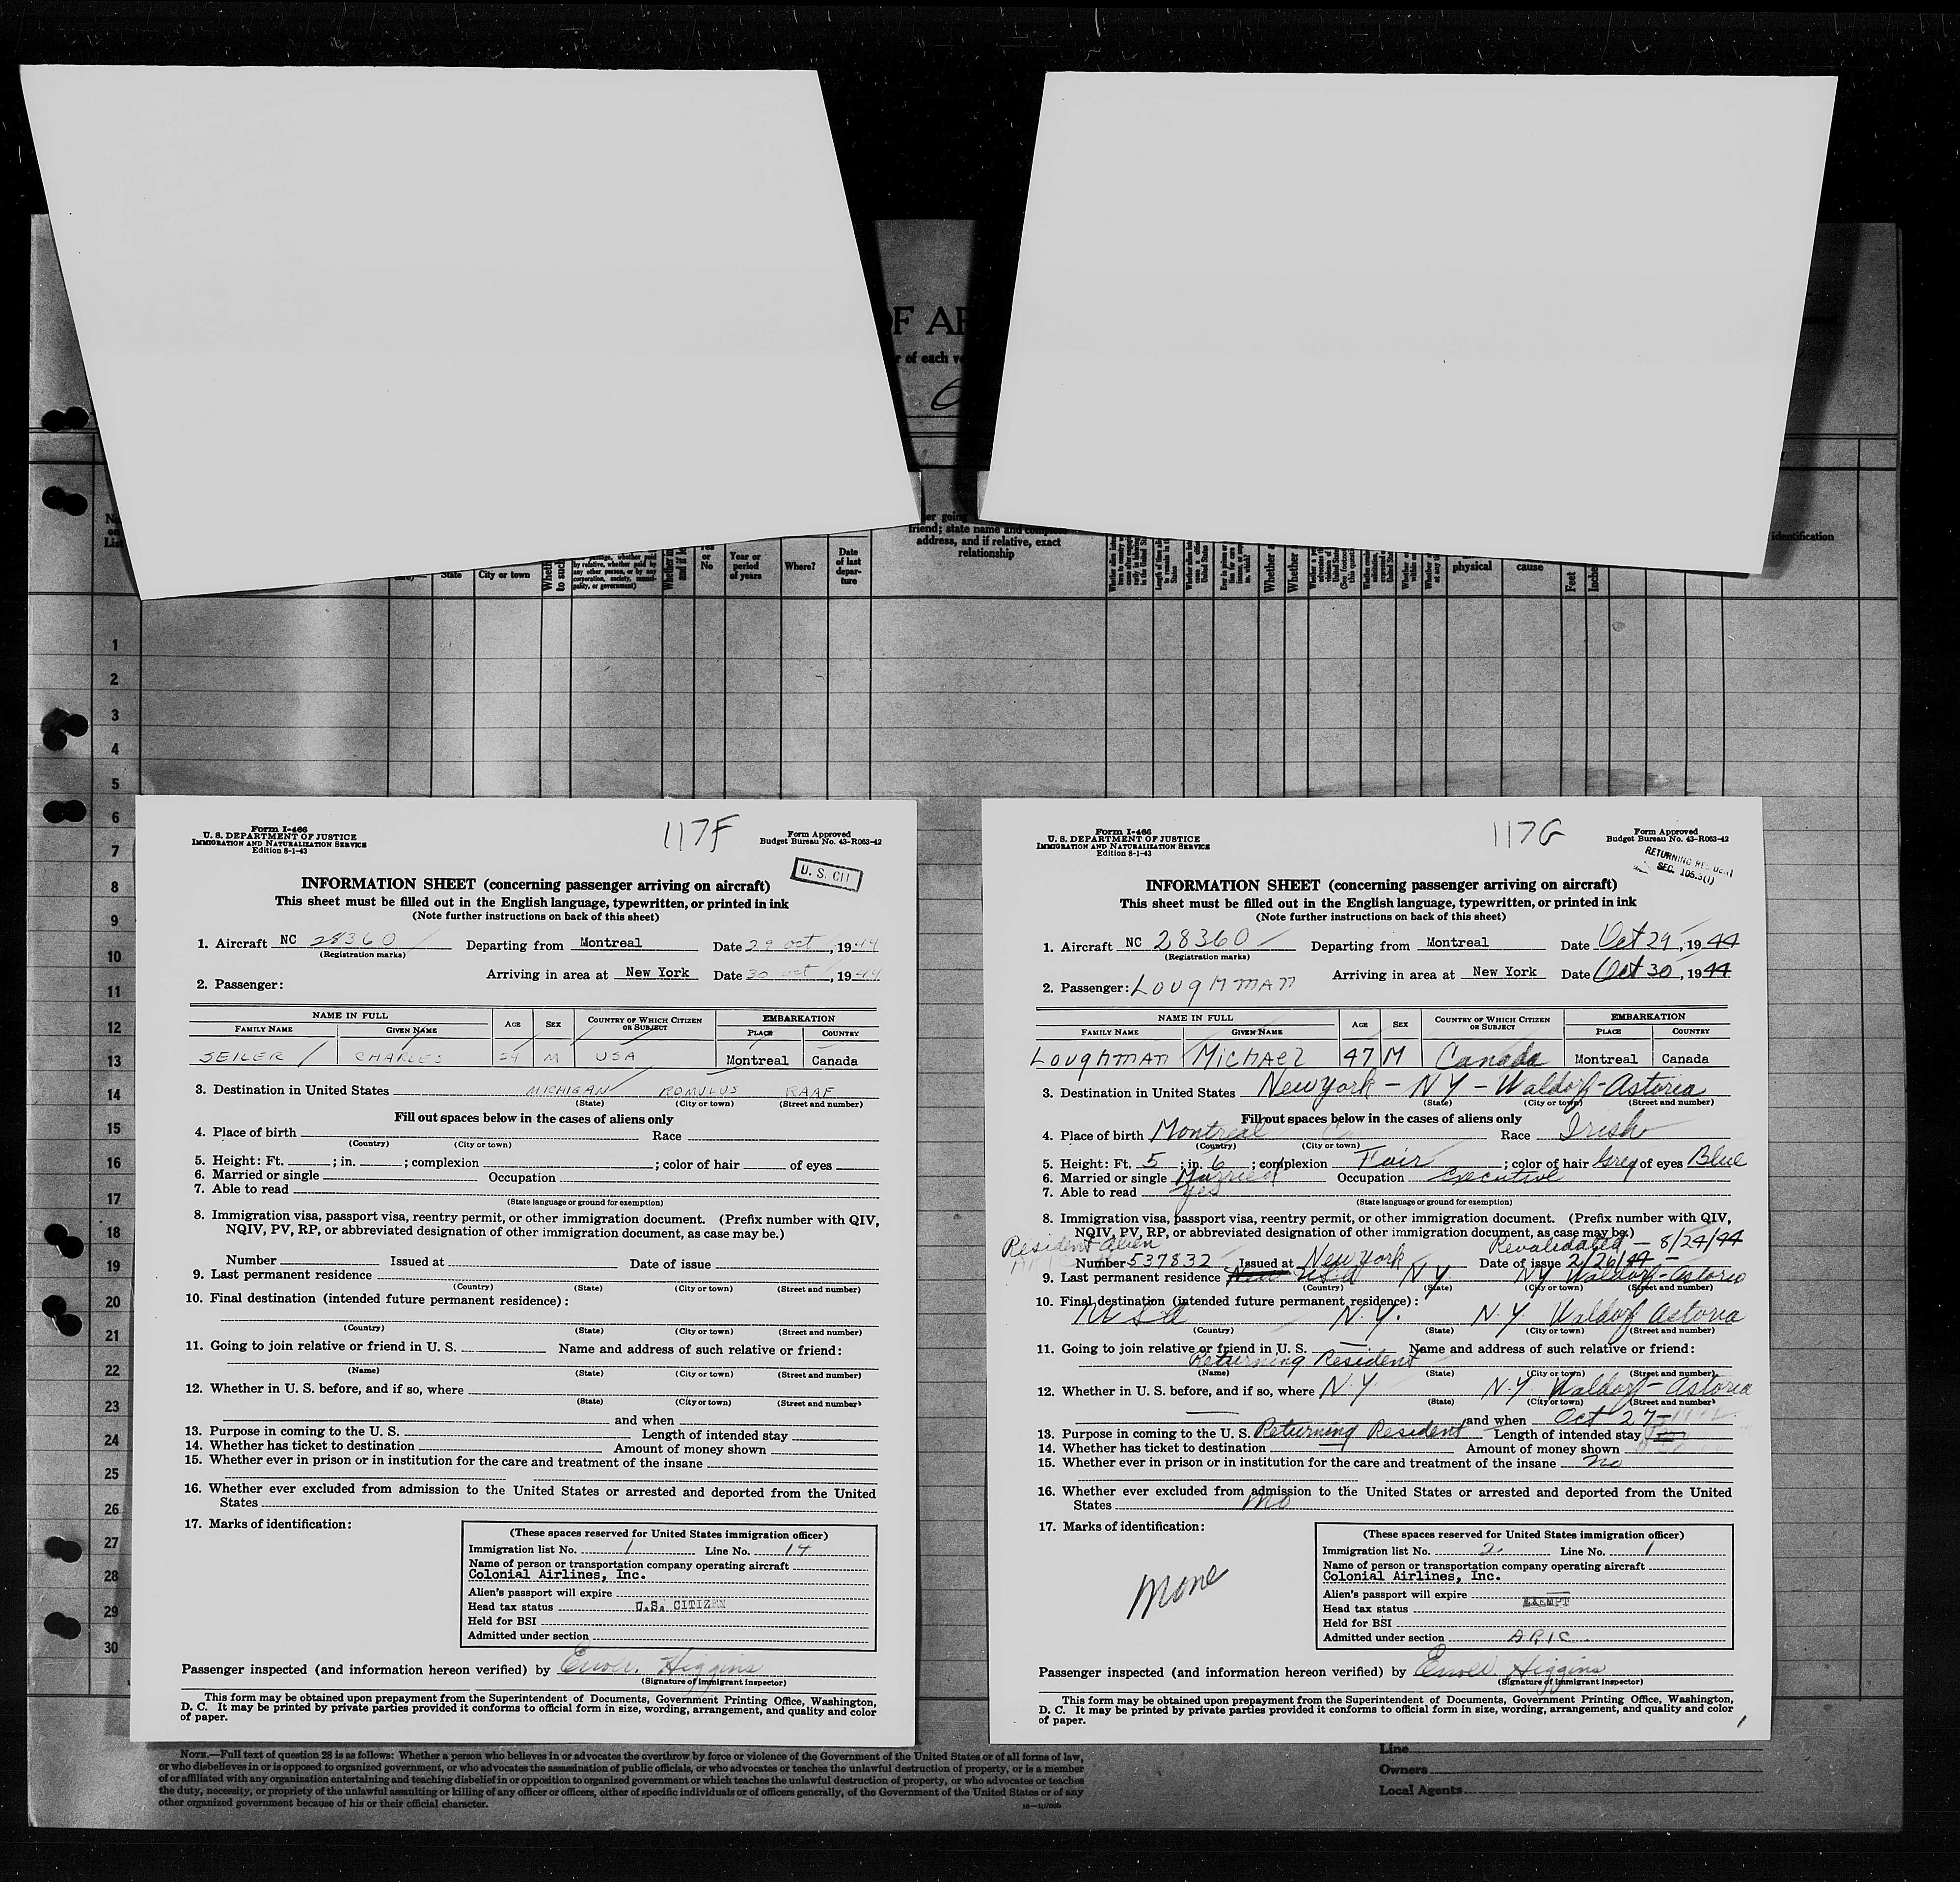 OF AR
r of each ve
No.
on
List
State
City or town
by relative, whether paid by any other person, or by any corporation, society, municipality, or government)
or
No
Year or
period
of years
Where?
Date
of last
depar-
ture
friend; state name and complete
address, and if relative, exact
relationship
physical
cause
Feet
Inches
identification
1
2
3
4
5
6
7
8
9
10
11
12
13
14
15
16
17
18
19
20
21
22
23
24
25
26
27
28
29
30
Form I-466
U. S. DEPARTMENT OF JUSTICE
IMMIGRATION AND NATURALIZATION SERVICE
Edition 8-1-43
117F
Form Approved
Budget Bureau No. 43-R063-42
U. S. CIT
INFORMATION SHEET (concerning passenger arriving on aircraft)
This sheet must be filled out in the English language, typewritten, or printed in ink
(Note further instructions on back of this sheet)
1. Aircraft NC 28360 Departing from Montreal Date 29 oct, 1944
(Registration marks)
Arriving in area at New York Date 30 oct, 1944
2. Passenger:
NAME IN FULL AGE SEX COUNTRY OF WHICH CITIZEN OR SUBJECT EMBARKATION
FAMILY NAME GIVEN NAME PLACE COUNTRY
SEILER CHARLES 24 M USA Montreal Canada
3. Destination in United States MICHIGAN ROMULUS RAAF
(State) (City or town) (Street and number)
Fill out spaces below in the cases of aliens only
4. Place of birth Race
(Country) (City or town)
5. Height: Ft. ; in. ; complexion ; color of hair of eyes
6. Married or single Occupation
7. Able to read
(State language or ground for exemption)
8. Immigration visa, passport visa, reentry permit, or other immigration document. (Prefix number with QIV,
NQIV, PV, RP, or abbreviated designation of other immigration document, as case may be.)
Number Issued at Date of issue
9. Last permanent residence
(Country) (State) (City or town) (Street and number)
10. Final destination (intended future permanent residence):
(Country) (State) (City or town) (Street and number)
11. Going to join relative or friend in U. S. Name and address of such relative or friend:
(Name) (State) (City or town) (Street and number)
12. Whether in U. S. before, and if so, where
(State) (City or town) (Street and number)
and when
13. Purpose in coming to the U. S. Length of intended stay
14. Whether has ticket to destination Amount of money shown
15. Whether ever in prison or in institution for the care and treatment of the insane
16. Whether ever excluded from admission to the United States or arrested and deported from the United
States
17. Marks of identification:
(These spaces reserved for United States immigration officer)
Immigration list No. 1 Line No. 14
Name of person or transportation company operating aircraft
Colonial Airlines, Inc.
Alien's passport will expire
Head tax status U.S. CITIZEN
Held for BSI
Admitted under section
Passenger inspected (and information hereon verified) by Higgins
(Signature of immigrant inspector)
This form may be obtained upon prepayment from the Superintendent of Documents, Government Printing Office, Washington,
D. C. It may be printed by private parties provided it conforms to official form in size, wording, arrangement, and quality and color
of paper.
Form I-466
U. S. DEPARTMENT OF JUSTICE
IMMIGRATION AND NATURALIZATION SERVICE
Edition 8-1-43
117G
Form Approved
Budget Bureau No. 43-R063-42
RETURNING RESIDENT
SEC. 106.3(1)
INFORMATION SHEET (concerning passenger arriving on aircraft)
This sheet must be filled out in the English language, typewritten, or printed in ink
(Note further instructions on back of this sheet)
1. Aircraft NC 28360 Departing from Montreal Date Oct 29, 1944
(Registration marks)
Arriving in area at New York Date Oct 30, 1944
2. Passenger: LOUGHMAN
NAME IN FULL AGE SEX COUNTRY OF WHICH CITIZEN OR SUBJECT EMBARKATION
FAMILY NAME GIVEN NAME PLACE COUNTRY
LOUGHMAN MICHAEL 47 M Canada Montreal Canada
3. Destination in United States New York - NY - Waldorf-Astoria
(State) (City or town) (Street and number)
Fill out spaces below in the cases of aliens only
4. Place of birth Montreal Race Irish
(Country) (City or town)
5. Height: Ft. 5 ; in. 6 ; complexion Fair ; color of hair Grey of eyes Blue
6. Married or single Married Occupation Executive
7. Able to read yes
(State language or ground for exemption)
8. Immigration visa, passport visa, reentry permit, or other immigration document. (Prefix number with QIV,
NQIV, PV, RP, or abbreviated designation of other immigration document, as case may be.)
Resident Alien Revalidated - 8/24/44
Number 537832 Issued at New York Date of issue 2/26/44
9. Last permanent residence USA NY NY Waldorf-Astoria
(Country) (State) (City or town) (Street and number)
10. Final destination (intended future permanent residence):
USA N.Y. N.Y Waldorf Astoria
(Country) (State) (City or town) (Street and number)
11. Going to join relative or friend in U. S. — Name and address of such relative or friend:
Returning Resident
(Name) (State) (City or town) (Street and number)
12. Whether in U. S. before, and if so, where N.Y. N.Y Waldorf-Astoria
(State) (City or town) (Street and number)
— and when Oct 27-
13. Purpose in coming to the U. S. Returning Resident Length of intended stay
14. Whether has ticket to destination — Amount of money shown
15. Whether ever in prison or in institution for the care and treatment of the insane no
16. Whether ever excluded from admission to the United States or arrested and deported from the United
States no
17. Marks of identification:
None
(These spaces reserved for United States immigration officer)
Immigration list No. 2. Line No. 1
Name of person or transportation company operating aircraft
Colonial Airlines, Inc.
Alien's passport will expire —
Head tax status EXEMPT
Held for BSI
Admitted under section ARIC
Passenger inspected (and information hereon verified) by Higgins
(Signature of immigrant inspector)
This form may be obtained upon prepayment from the Superintendent of Documents, Government Printing Office, Washington,
D. C. It may be printed by private parties provided it conforms to official form in size, wording, arrangement, and quality and color
of paper.
NOTE.—Full text of question 28 is as follows: Whether a person who believes in or advocates the overthrow by force or violence of the Government of the United States or of all forms of law,
or who disbelieves in or is opposed to organized government, or who advocates the assassination of public officials, or who advocates or teaches the unlawful destruction of property, or is a member
of or affiliated with any organization entertaining and teaching disbelief in or opposition to organized government or which teaches the unlawful destruction of property, or who advocates or teaches
the duty, necessity, or propriety of the unlawful assaulting or killing of any officer or officers, either of specific individuals or of officers generally, of the Government of the United States or of any
other organized government because of his or their official character.
Line
Owners
Local Agents